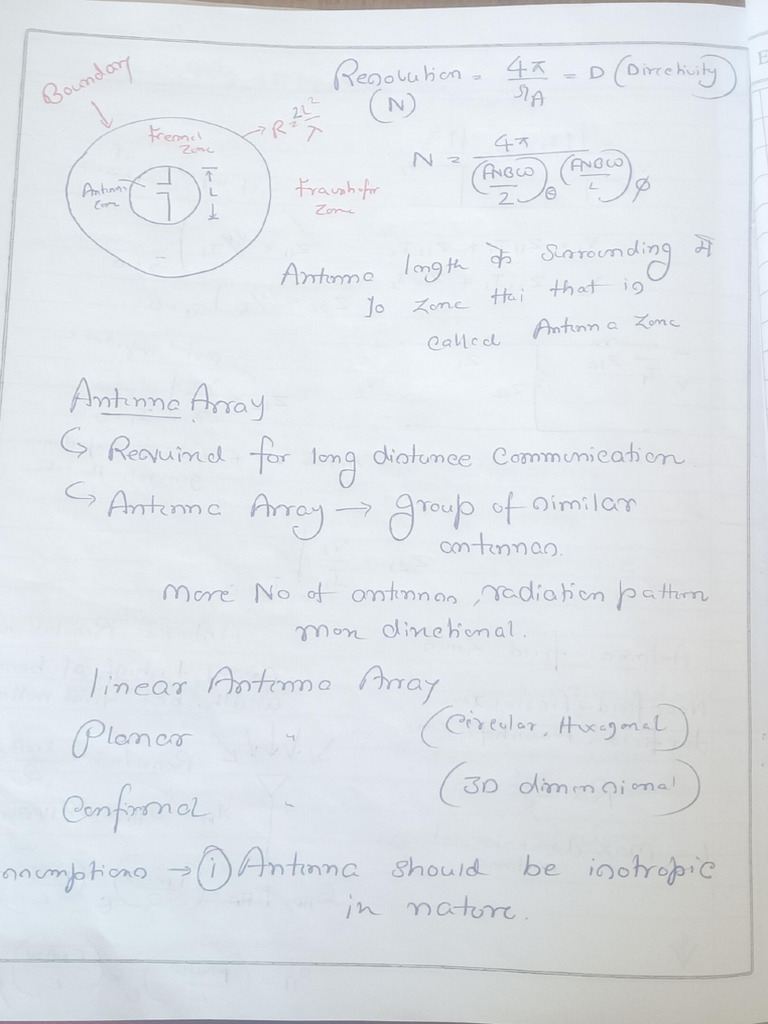 Boundary
Resolution = 4π/ΩA = D (Directivity)
(N)
Fresnel
Zone
R = 2L²/λ
Antenna
Zone
L
Fraunhofer
Zone
N = 4π/(FNBW/2)θ (FNBW/2)φ
Antenna length के surrounding में
Jo zone Hai that is
called Antenna Zone
Antenna Array
↳ Required for long distance communication
↳ Antenna Array → group of similar
antennas.
More No of antennas, radiation pattern
more directional.
linear Antenna Array
Planar " (Circular, Hexagonal)
Confirmal " (3D dimensional)
ssumptions → ① Antenna should be isotropic
in nature.